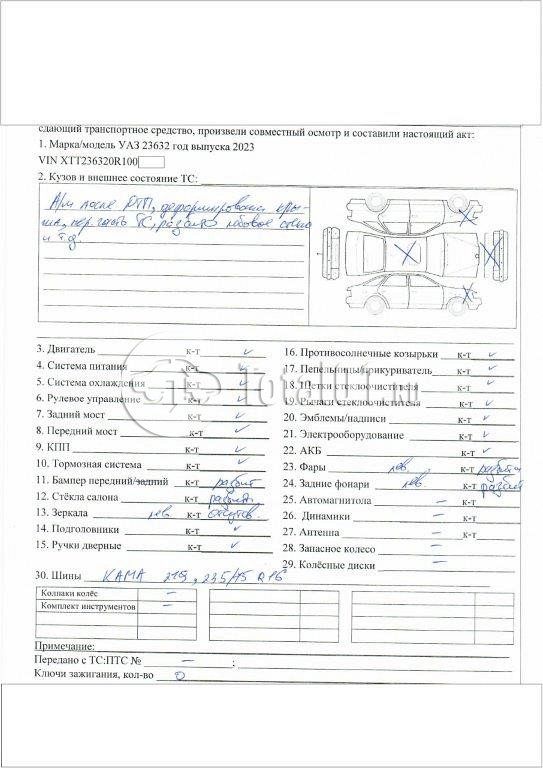 сдающий транспортное средство, произвели совместный осмотр и составили настоящий акт:
1. Марка/модель УАЗ 23632 год выпуска 2023
VIN XTT236320R100
2. Кузов и внешнее состояние ТС:
А/м после ДТП, деформирована кры-
ша, пер. часть ТС, разбито лобовое стекло
и т.д.
3. Двигатель к-т
4. Система питания к-т
5. Система охлаждения к-т
6. Рулевое управление к-т
7. Задний мост к-т
8. Передний мост к-т
9. КПП к-т
10. Тормозная система к-т
11. Бампер передний/задний к-т разбит
12. Стёкла салона к-т
13. Зеркала лев. к-т отсутств.
14. Подголовники к-т
15. Ручки дверные к-т
16. Противосолнечные козырьки к-т
17. Пепельницы/прикуриватель к-т
18. Щетки стеклоочистителя к-т
19. Рычаги стеклоочистителя к-т
20. Эмблемы/надписи к-т
21. Электрооборудование к-т
22. АКБ к-т
23. Фары лев. к-т
24. Задние фонари лев. к-т разбит
25. Автомагнитола – к-т
26. Динамики – к-т
27. Антенна – к-т
28. Запасное колесо –
29. Колёсные диски –
30. Шины КАМА 219, 235/75 R16
Колпаки колёс –
Комплект инструментов –
Примечание:
Передано с ТС:ПТС № – ;
Ключи зажигания, кол-во 0